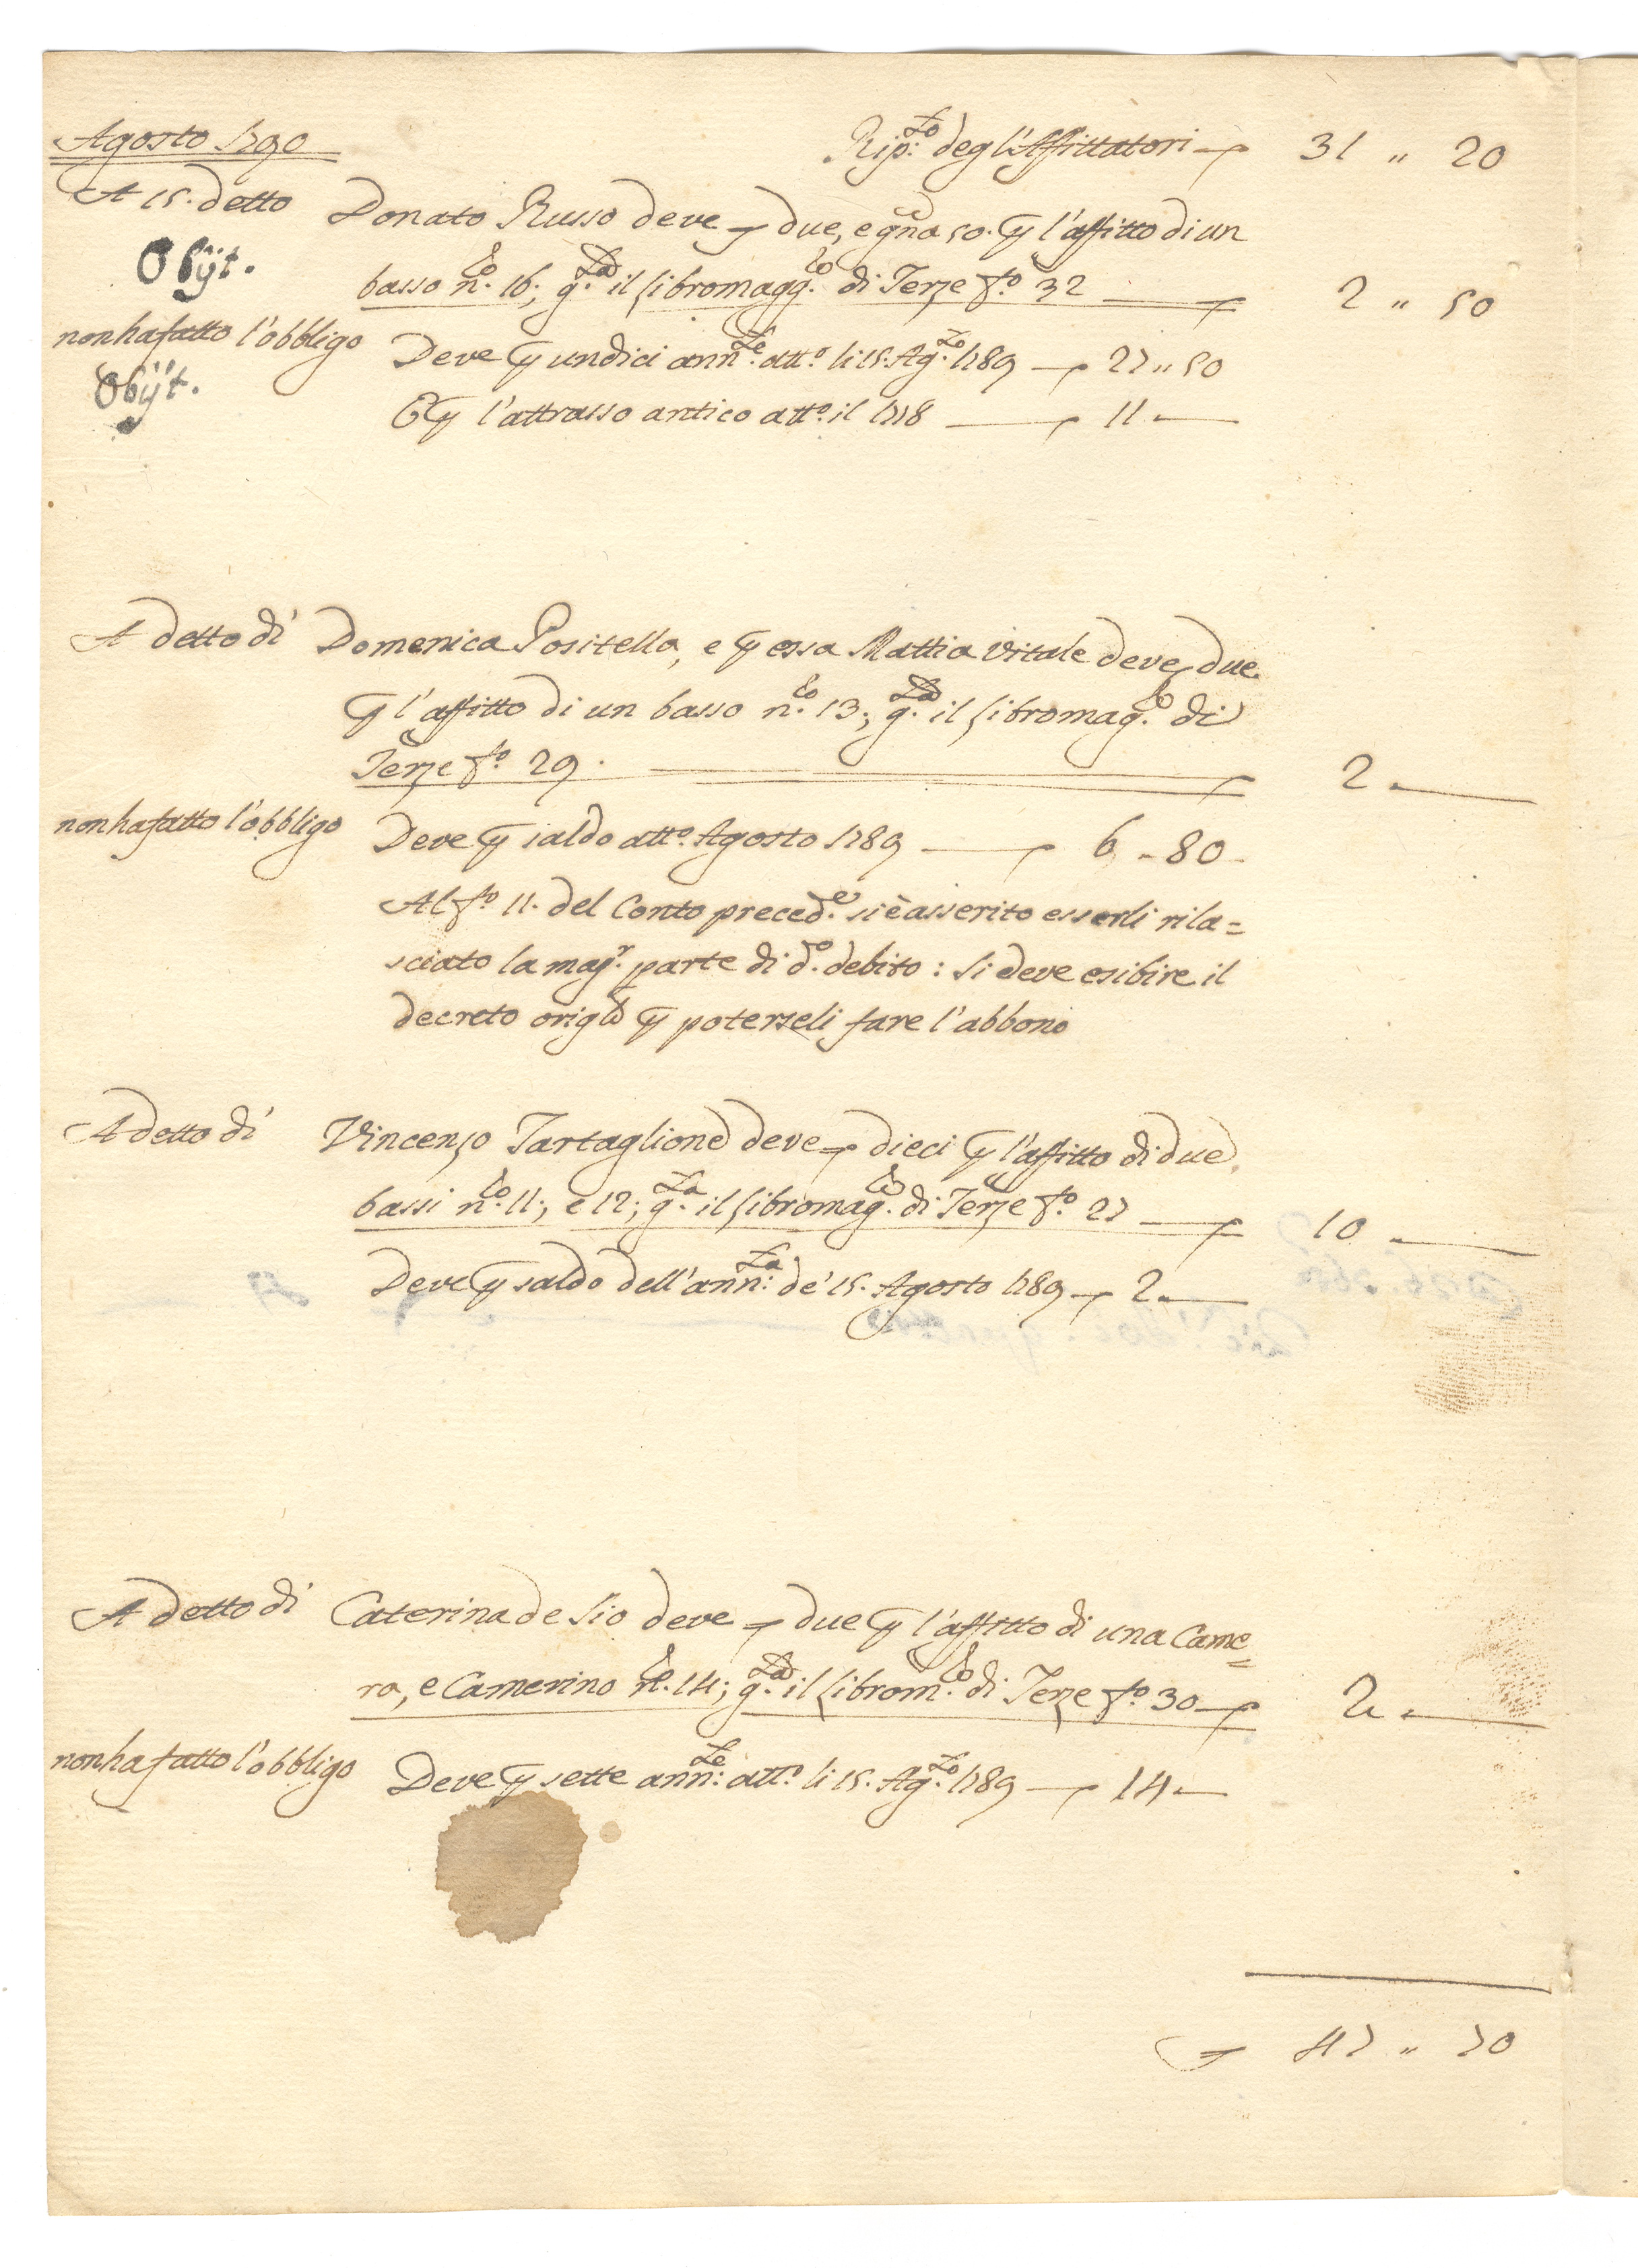 Agosto 1790
Rip:to degl'Affittatori — 31 " 20
A 15. detto Donato Russo deve due, e gna 50. p l'affitto di un
Obijt.
basso n.ro 16; g.ta il libro magg.re di Terze f.o 32 — 2 " 50
non ha fatto l'obbligo Deve p undici ann:te att.o li 15. Ag.to 1789 — 27 " 50
Obijt.
E p l'attrasso antico att.o il 1778 — 11 —
A detto dì Domenica Positella, e p essa Mattia Vitale deve due
p l'affitto di un basso n.ro 13; g.ta il libro mag.re di
Terze f.o 29. — 2 —
non ha fatto l'obbligo Deve p saldo att.o Agosto 1789 — 6 " 80
Al f.o 11. del Conto preced.e si è asserito esserli rila=
sciato la mag.r parte di d.o debito: si deve esibire il
decreto origle p poterseli fare l'abbono
A detto dì Vincenzo Tartaglione deve dieci p l'affitto di due
bassi n.ro 11; e 12; g.ta il libro mag.re di Terze f.o 27 — 10 —
Deve p saldo dell'ann:ta de' 15. Agosto 1789 — 2 —
A detto dì Caterina de Sio deve due p l'affitto di una Came=
ra, e Camerino n.ro 14; g.ta il libro m.re di Terze f.o 30 — 2 —
non ha fatto l'obbligo Deve p sette ann:te att.o li 15. Ag.to 1789 — 14 —
47 " 70